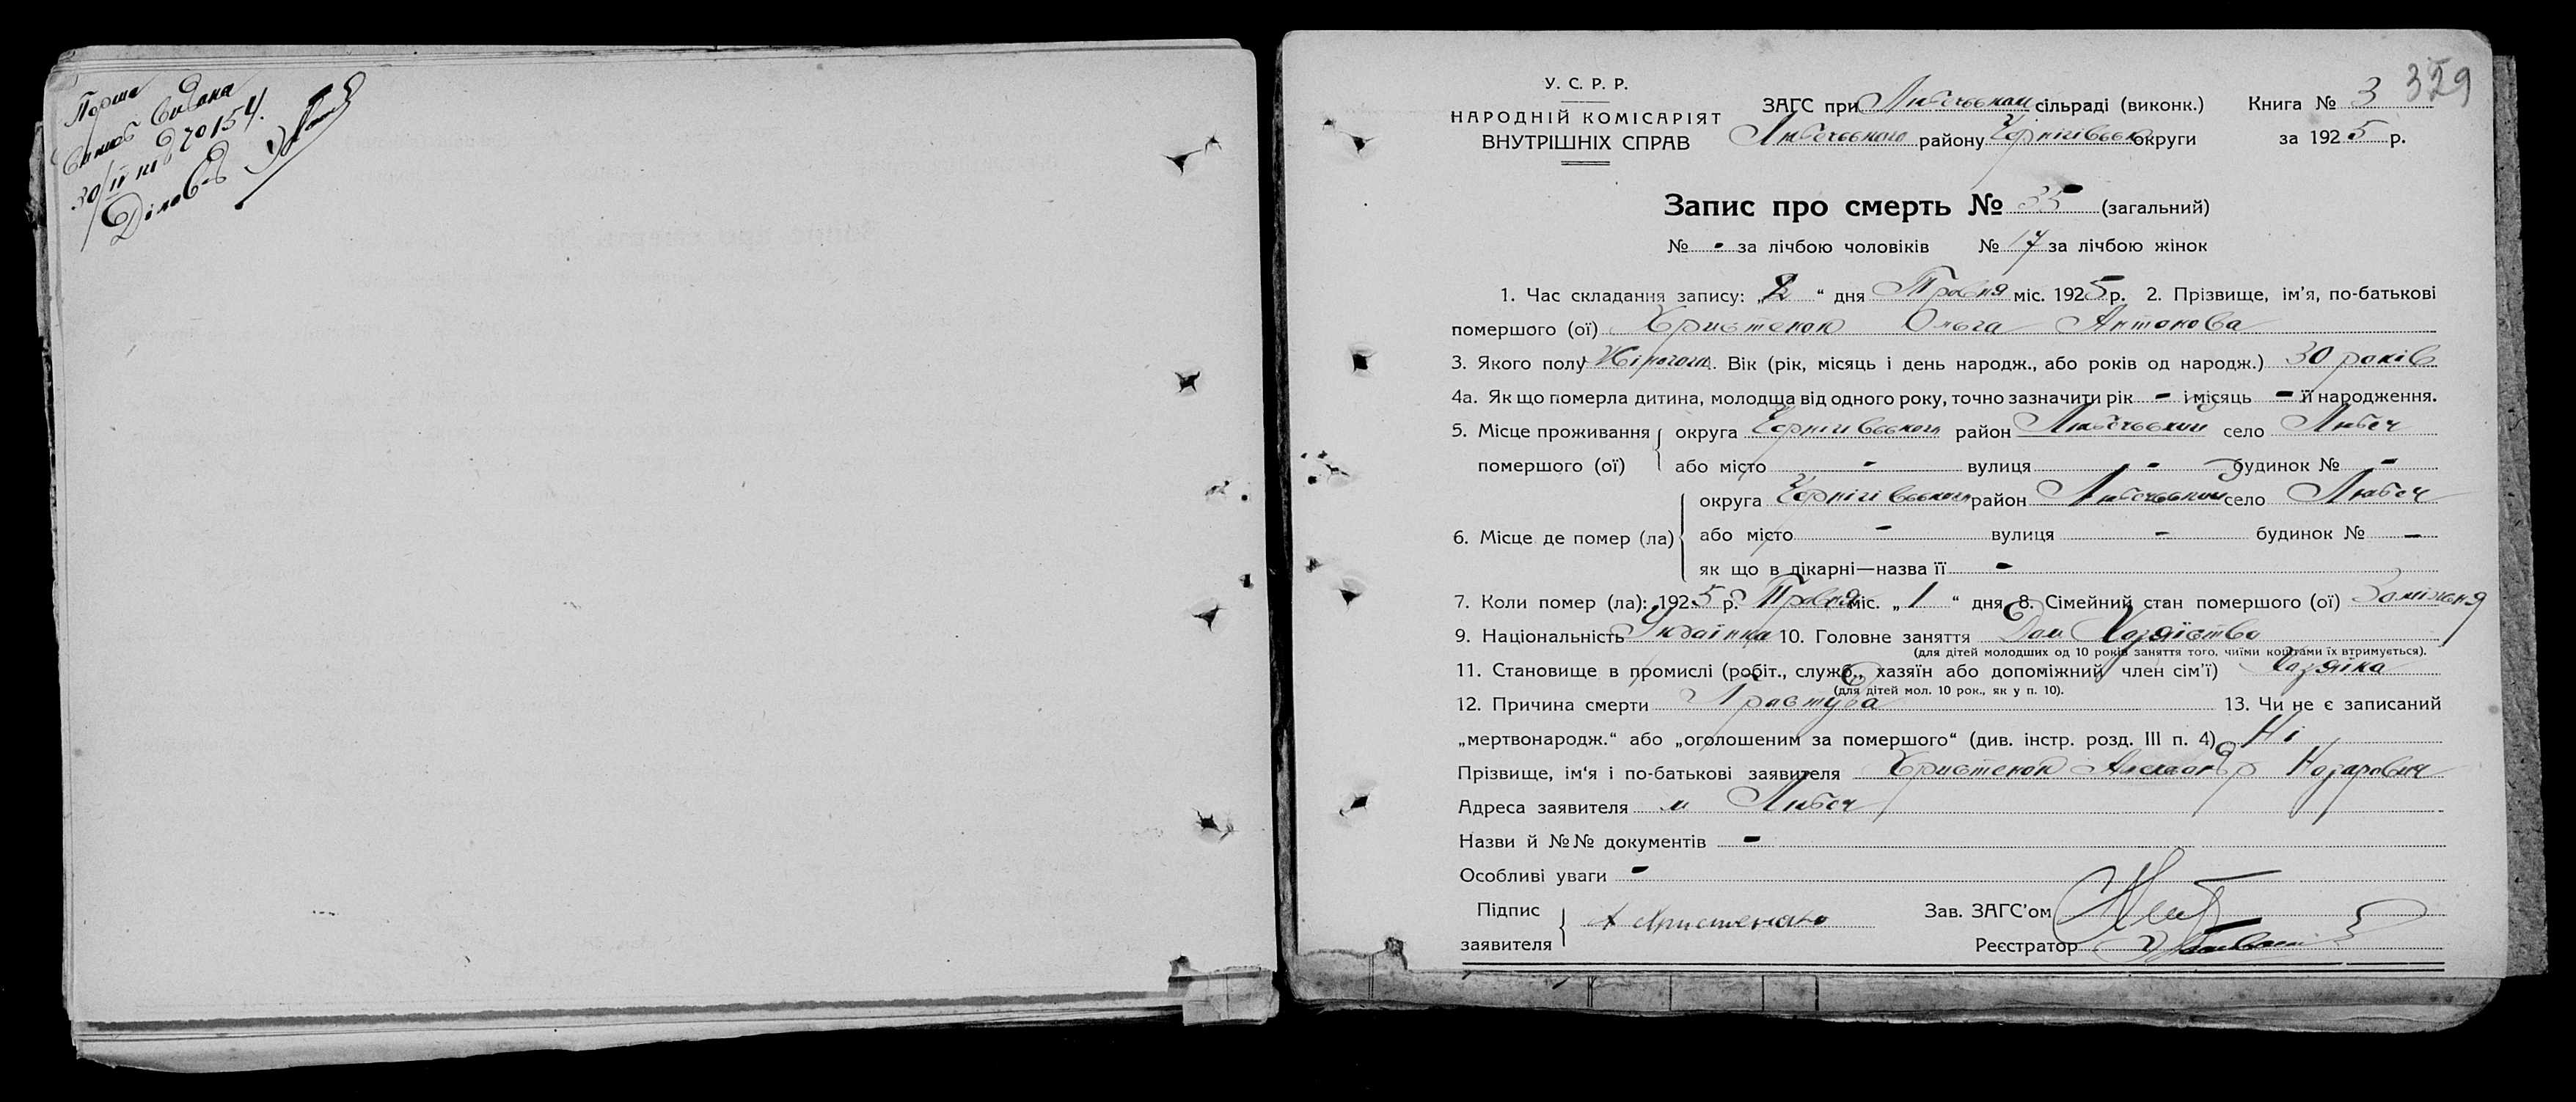 Перша
випис видана
30/II
У. С. Р. Р.
НАРОДНІЙ КОМІСАРІЯТ
ВНУТРІШНІХ СПРАВ
ЗАГС при Любечьском сільраді (виконк.) Книга № 3 329
Любечьского району Чернігівськ округи за 1925 р.
Запис про смерть № 35 (загальний)
№ - за лічбою чоловіків № 17 за лічбою жінок
1. Час складання запису: „2“ дня Травня міс. 1925 р. 2. Прізвище, ім’я, по-батькові
помершого (ої) Христенок Ольга Антонова
3. Якого полу Жіночого 4. Вік (рік, місяць і день народж., або років од народж.) 30 років
4а. Як що померла дитина, молодща від одного року, точно зазначити рік - і місяць - її народження.
5. Місце проживання округа Чернігівського район Любечьский село Любеч
помершого (ої) або місто - вулиця - будинок № -
округа Чернігівського район Любечьский село Любеч
6. Місце де помер (ла) або місто - вулиця - будинок № -
як що в лікарні—назва її -
7. Коли помер (ла): 1925 р. Травня міс. „1“ дня 8. Сімейний стан помершого (ої) Заміжня
9. Національність Українка 10. Головне заняття Дом Хозяїство
(для дітей молодших од 10 років заняття того, чиїми коштами їх втримується).
11. Становище в промислі (робіт., служб., хазяїн або допоміжний член сім’ї) Хозяїка
(для дітей мол. 10 рок., як у п. 10).
12. Причина смерти Простуда 13. Чи не є записаний
„мертвонародж.“ або „оголошеним за помершого“ (див. інстр. розд. III п. 4) Ні
Прізвище, ім‘я і по-батькові заявителя Христенок Александр Назарович
Адреса заявителя м Любеч
Назви й №№ документів -
Особливі уваги -
Підпис
заявителя А Христенок
Зав. ЗАГС’ом
Реєстратор